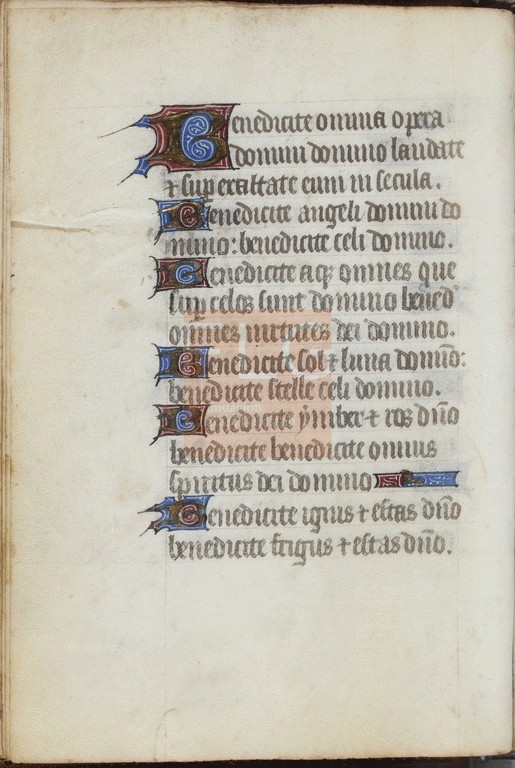 Benedicite omnia opera
domini domino laudate
⁊ superexaltate eum in secula.
Benedicite angeli domini do
mino: benedicite celi domino.
Benedicite aq̄ omnes que
sup̄ celos sunt domino bened̄
omnes uirtutes dei domino.
Benedicite sol ⁊ luna domīo:
benedicite stelle celi domino.
Benedicite ymber ⁊ ros dn̄o
benedicite benedicite omnis
spiritus dei domino
Benedicite ignis ⁊ estas dn̄o
benedicite frigus ⁊ estas dn̄o.